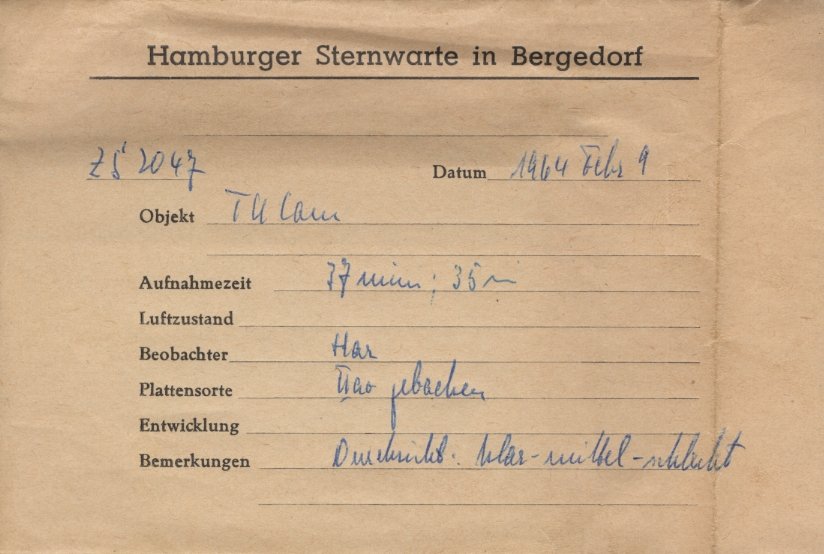 Hamburger Sternwarte in Bergedorf
ZS 2047 Datum 1964 Febr 9
Objekt TU Cam
Aufnahmezeit 37 min; 35 m
Luftzustand
Beobachter Har
Plattensorte IIao gebacken
Entwicklung
Bemerkungen Durchsicht: klar-mittel-schlecht